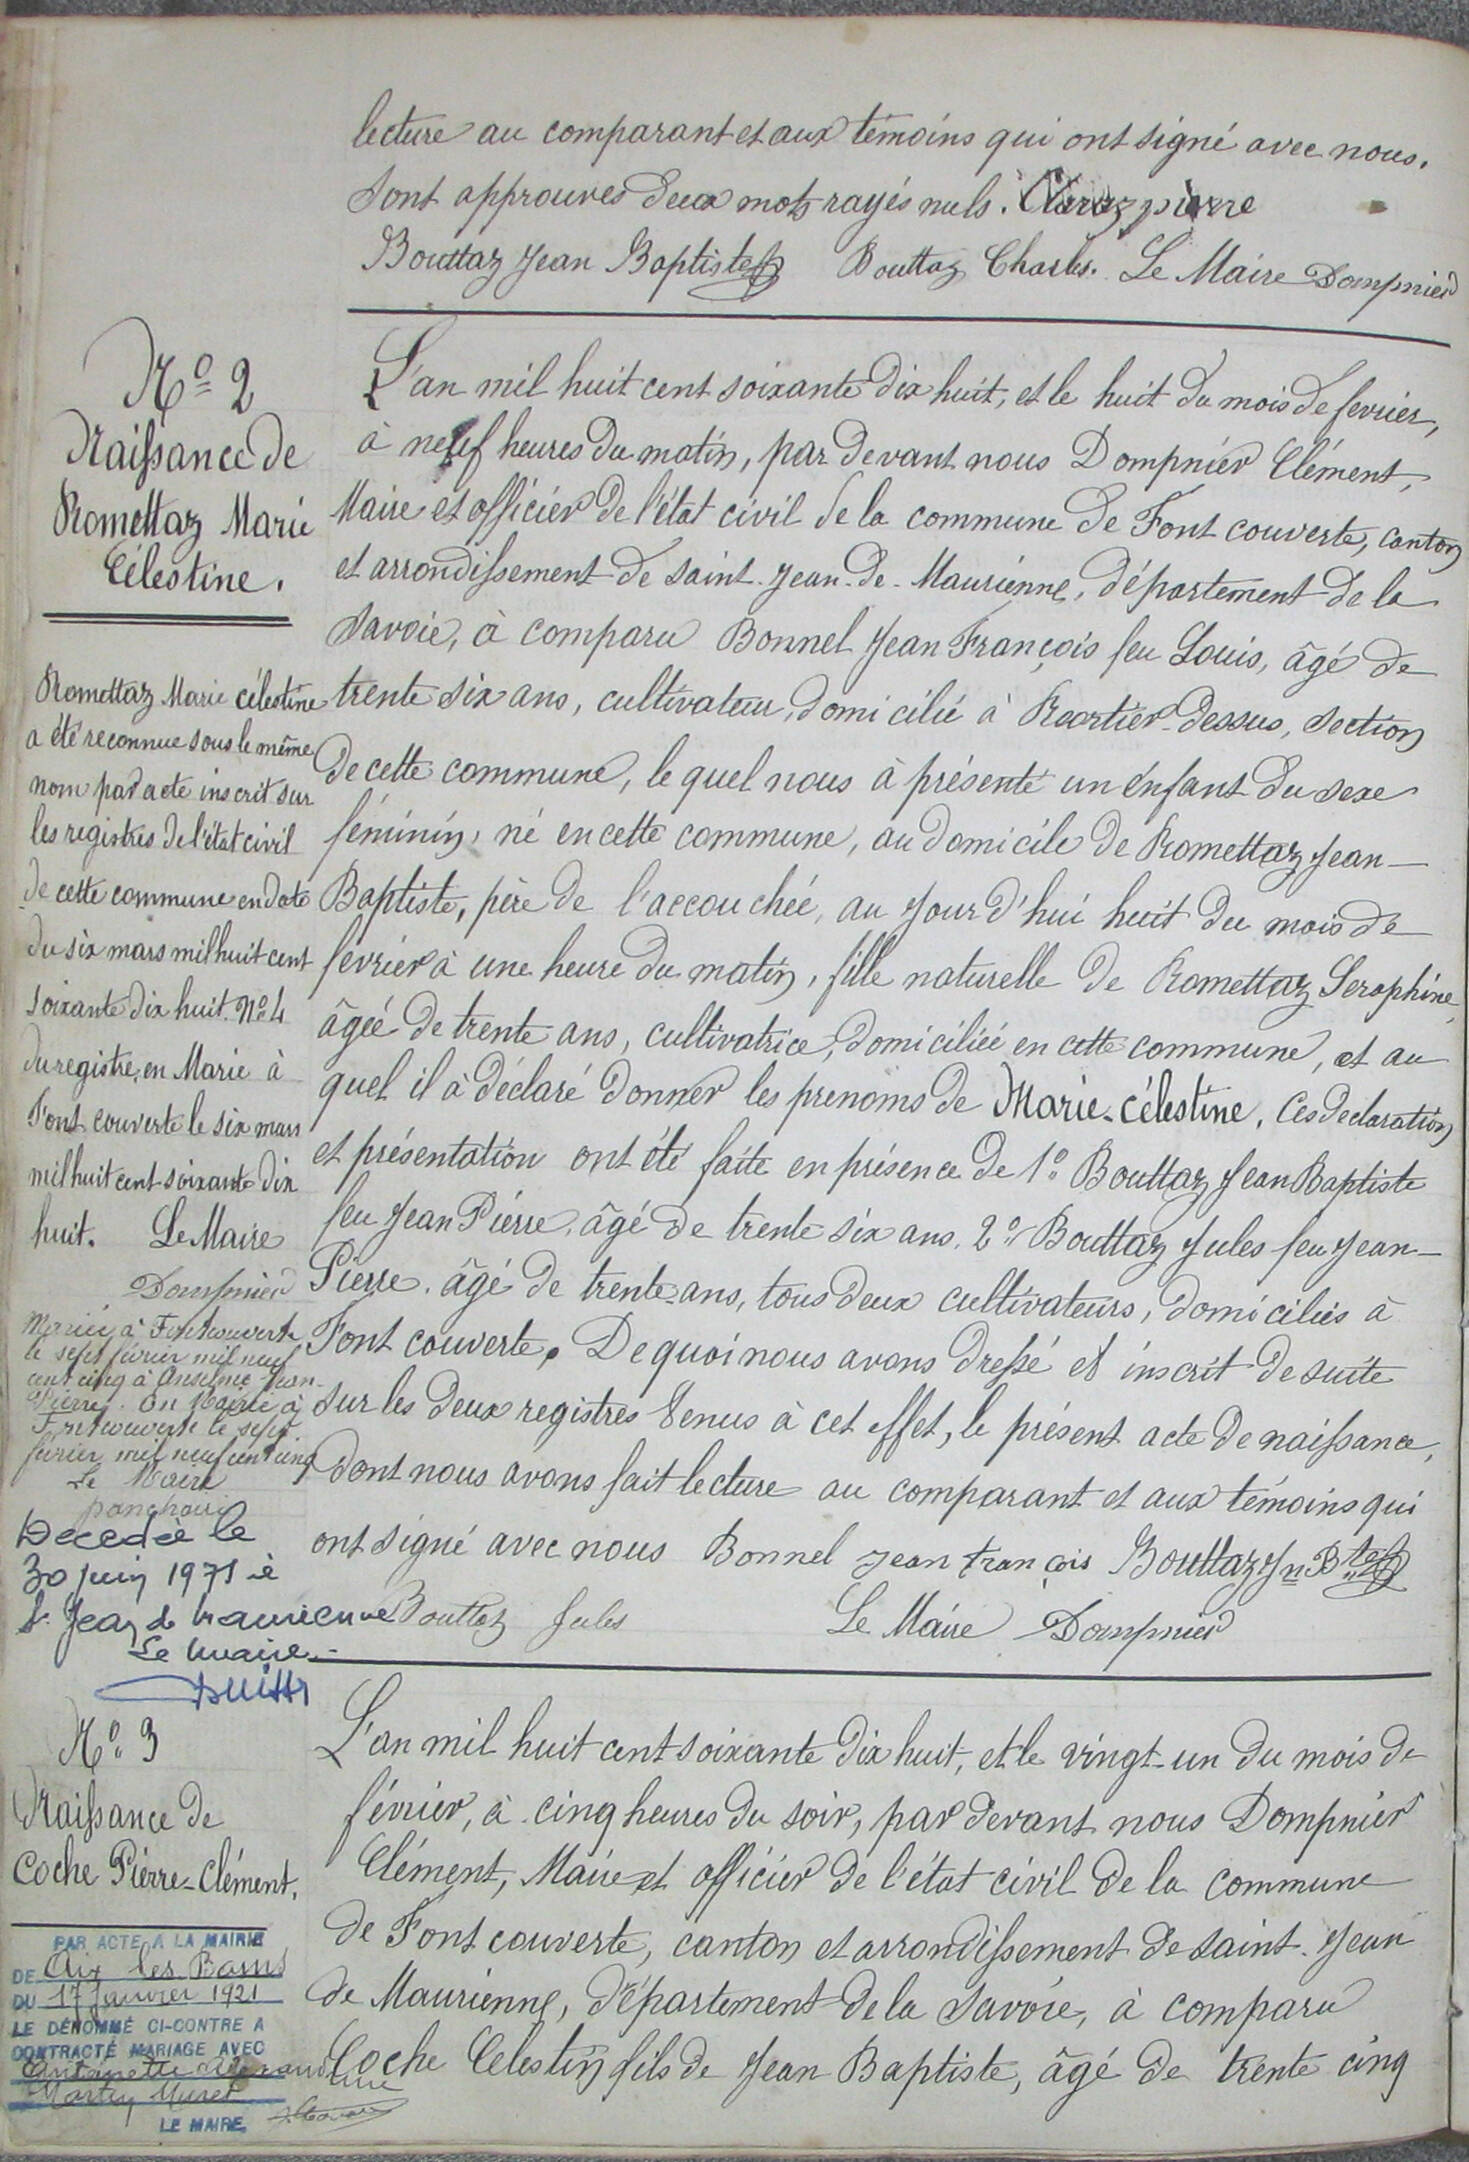 lecture au comparant et aux témoins qui ont signé avec nous.
Sont approuvés deux mots rayés nuls. Claraz pierre
Bouttaz Jean Baptiste Bouttaz Charles. Le Maire Dompnier
N° 2
Naissance de
Romettaz Marie
Célestine.
Romettaz Marie célestine
a été reconnue sous le même
nom par acte inscrit sur
les registres de l'état civil
de cette commune en date
du six mars mil huit cent
soixante dix huit. N° 4
du registre, en Marie à
Font couverte le six mars
mil huit cent soixante dix
huit. Le Maire
Dompnier
Mariée à Fontcouverte
le sept février mil neuf
cent cinq à Anselme Jean-
Pierre. En Mairie à
Fontcouverte le sept
février mil neuf cent cinq
Le Maire
Decedée le
30 juin 1971 à
St Jean de Maurienne
Le maire
L'an mil huit cent soixante dix huit, et le huit du mois de fevrier,
à neuf heures du matin, par devant nous Dompnier Clément,
Maire et officier de l'état civil de la commune de Font couverte, canton
et arrondissement de saint-Jean-de-Maurienne, département de la
Savoie, à comparu Bonnel Jean François feu Louis, âgé de
trente six ans, cultivateur, domicilié à Rcartier-Dessus, section
de cette commune, le quel nous à présenté un enfant du sexe
féminin, né en cette commune, au domicile de Romettaz Jean-
Baptiste, père de l'accouchée, au jour d'hui huit du mois de
fevrier à une heure du matin, fille naturelle de Romettaz Seraphine,
âgée de trente ans, cultivatrice, domiciliée en cette commune, et au
quel il à déclaré donner les prenoms de Marie-Célestine. Ces declaration
et présentation ont été faite en présence de 1° Bouttaz Jean Baptiste
feu Jean Pierre, âgé de trente six ans. 2° Bouttaz Jules feu Jean-
Pierre. âgé de trente-ans, tous deux cultivateurs, domiciliés à
Font couverte. De quoi nous avons dressé et inscrit de suite
sur les deux registres tenus à cet effet, le présent acte de naissance,
dont nous avons fait lecture au comparant et aux témoins qui
ont signé avec nous Bonnel jean françois Bouttaz Jn Bte
Bouttaz Jules Le Maire Dompnier
N° 3
Naissance de
Coche Pierre-Clément.
PAR ACTE A LA MAIRIE
DE Aix les Bains
DU 17 Janvier 1921
LE DÉNOMMÉ CI-CONTRE A
CONTRACTÉ MARIAGE AVEC
Antoinette Alexandrine
LE MAIRE,
L'an mil huit cent soixante dix huit, et le vingt-un du mois de
février, à cinq heures du soir, par devant nous Dompnier
Clément, Maire et officier de l'état civil de la commune
de Font couverte, canton et arrondissement de saint-Jean
de Maurienne, département de la Savoie, à comparu
Coche Celestin fils de Jean Baptiste, âgé de trente cinq